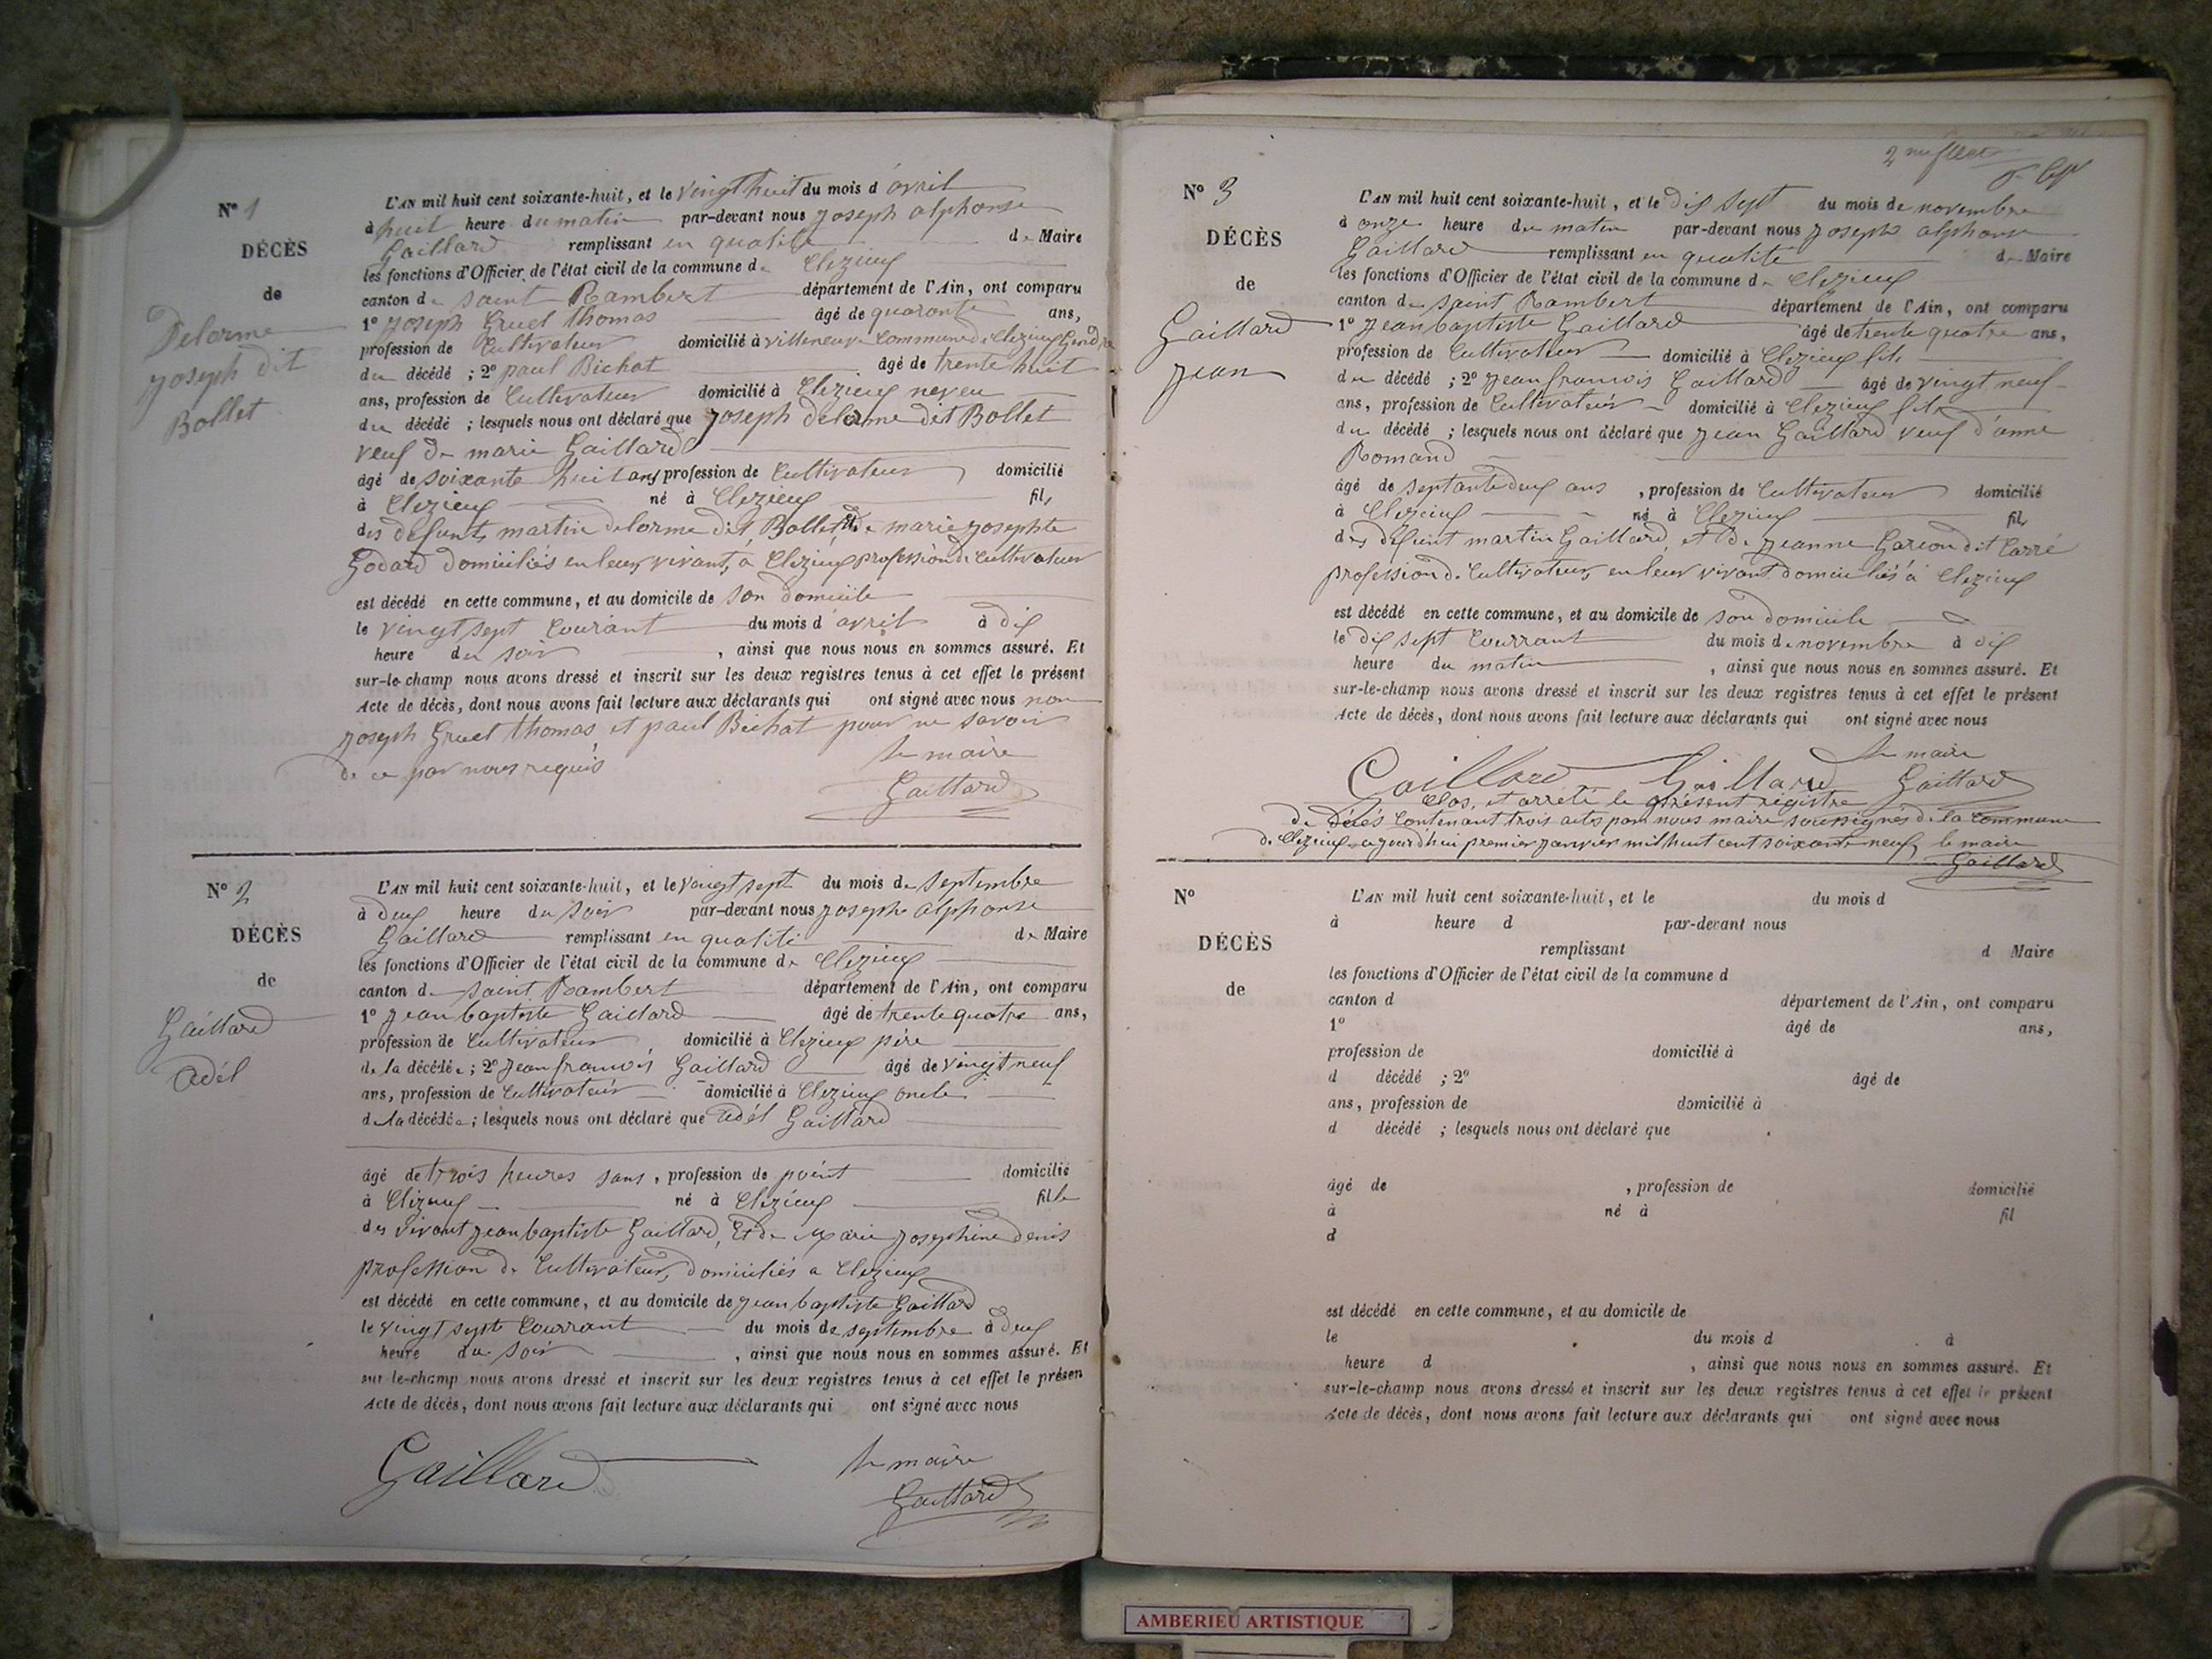 N° 1
DÉCÈS
de
Delorme
Joseph dit
Bollet
L'AN mil huit cent soixante-huit, et le vingt huit du mois d'avril
à huit heure du matin par-devant nous Joseph alphonse
Gaillard remplissant en qualité de Maire
les fonctions d'Officier de l'état civil de la commune de Cleyzieu
canton de saint Rambert département de l'Ain, ont comparu
1° Joseph Gruel Thomas âgé de quarante ans,
profession de Cultivateur domicilié à villeneuve Commune de Cleyzieu Gendre
du décédé ; 2° paul Bichat âgé de trente huit
ans, profession de Cultivateur domicilié à Cleyzieu neveu
du décédé ; lesquels nous ont déclaré que Joseph delorme dit Bollet
veuf de marie Gaillard
âgé de soixante huit ans profession de Cultivateur domicilié
à Cleyzieu né à Cleyzieu fils
des défunts martin delorme dit Bollet et de marie Josephte
Godard domiciliés en leurs vivant, à Cleyzieu profession de Cultivateur
est décédé en cette commune, et au domicile de son domicile
le vingt sept Courant du mois d'avril à dix
heure du soir , ainsi que nous nous en sommes assuré. Et
sur-le-champ nous avons dressé et inscrit sur les deux registres tenus à cet effet le présent
Acte de décès, dont nous avons fait lecture aux déclarants qui ont signé avec nous non
Joseph Gruel Thomas, et paul Bichat pour ne savoir
de ce par nous requis
le maire
Gaillard
N° 2
DÉCÈS
de
Gaillard
Adél
L'AN mil huit cent soixante-huit, et le vingt sept du mois de septembre
à deux heure du soir par-devant nous Joseph alphonse
Gaillard remplissant en qualité de Maire
les fonctions d'Officier de l'état civil de la commune de Cleyzieu
canton de saint Rambert département de l'Ain, ont comparu
1° Jean baptiste Gaillard âgé de trente quatre ans,
profession de Cultivateur domicilié à Cleyzieu père
de la décédée ; 2° Jean francois Gaillard âgé de vingt neuf
ans, profession de Cultivateur domicilié à Cleyzieu oncle
de la décédée ; lesquels nous ont déclaré que Adél Gaillard
âgé de trois heures sans , profession de point domicilié
à Cleyzieu né à Cleyzieu fille
des vivant Jean baptiste Gaillard, et de Marie Josephine denis
profession de Cultivateur, domiciliés a Cleyzieu
est décédé en cette commune, et au domicile de Jean baptiste Gaillard
le vingt sept Courrant du mois de septembre à deux
heure du soir , ainsi que nous nous en sommes assuré. Et
sur-le-champ nous avons dressé et inscrit sur les deux registres tenus à cet effet le présen
Acte de décès, dont nous avons fait lecture aux déclarants qui ont signé avec nous
Gaillard
le maire
Gaillard
N° 3
DÉCÈS
de
Gaillard
Jean
L'AN mil huit cent soixante-huit, et le dix sept du mois de novembre
à onze heure du matin par-devant nous Joseph alphonse
Gaillard remplissant en qualité de Maire
les fonctions d'Officier de l'état civil de la commune de Cleyzieu
canton de saint Rambert département de l'Ain, ont comparu
1° Jean baptiste Gaillard âgé de trente quatre ans,
profession de Cultivateur domicilié à Cleyzieu fils
du décédé ; 2° Jean francois Gaillard âgé de vingt neuf
ans, profession de Cultivateur domicilié à Cleyzieu fils
du décédé ; lesquels nous ont déclaré que Jean Gaillard veuf d'anne
Romand
âgé de septante deux ans , profession de Cultivateur domicilié
à Cleyzieu né à Cleyzieu fils
des défunt martin Gaillard, et de Jeanne Garcon dit Carré
profession de Cultivateurs en leur vivant domiciliés à Cleyzieu
est décédé en cette commune, et au domicile de son domicile
le dix sept Courrant du mois de novembre à dix
heure du matin , ainsi que nous nous en sommes assuré. Et
sur-le-champ nous avons dressé et inscrit sur les deux registres tenus à cet effet le présent
Acte de décès, dont nous avons fait lecture aux déclarants qui ont signé avec nous
le maire
Gaillard Gaillard Gaillard
Clos, et arrêté le présent registre
de décès Contenant trois acts par nous maire soussignés de la Commune
de Cleyzieu aujourd'hui premier Janvier mil huit cent soixante neuf, le maire
Gaillard
N°
DÉCÈS
de
L'AN mil huit cent soixante-huit, et le du mois d
à heure d par-devant nous
remplissant d Maire
les fonctions d'Officier de l'état civil de la commune d
canton d département de l'Ain, ont comparu
1° âgé de ans,
profession de domicilié à
d décédé ; 2° âgé de
ans, profession de domicilié à
d décédé ; lesquels nous ont déclaré que
âgé de , profession de domicilié
à né à fil
d
est décédé en cette commune, et au domicile de
le du mois d à
heure d , ainsi que nous nous en sommes assuré. Et
sur-le-champ nous avons dressé et inscrit sur les deux registres tenus à cet effet le présent
Acte de décès, dont nous avons fait lecture aux déclarants qui ont signé avec nous
AMBERIEU ARTISTIQUE